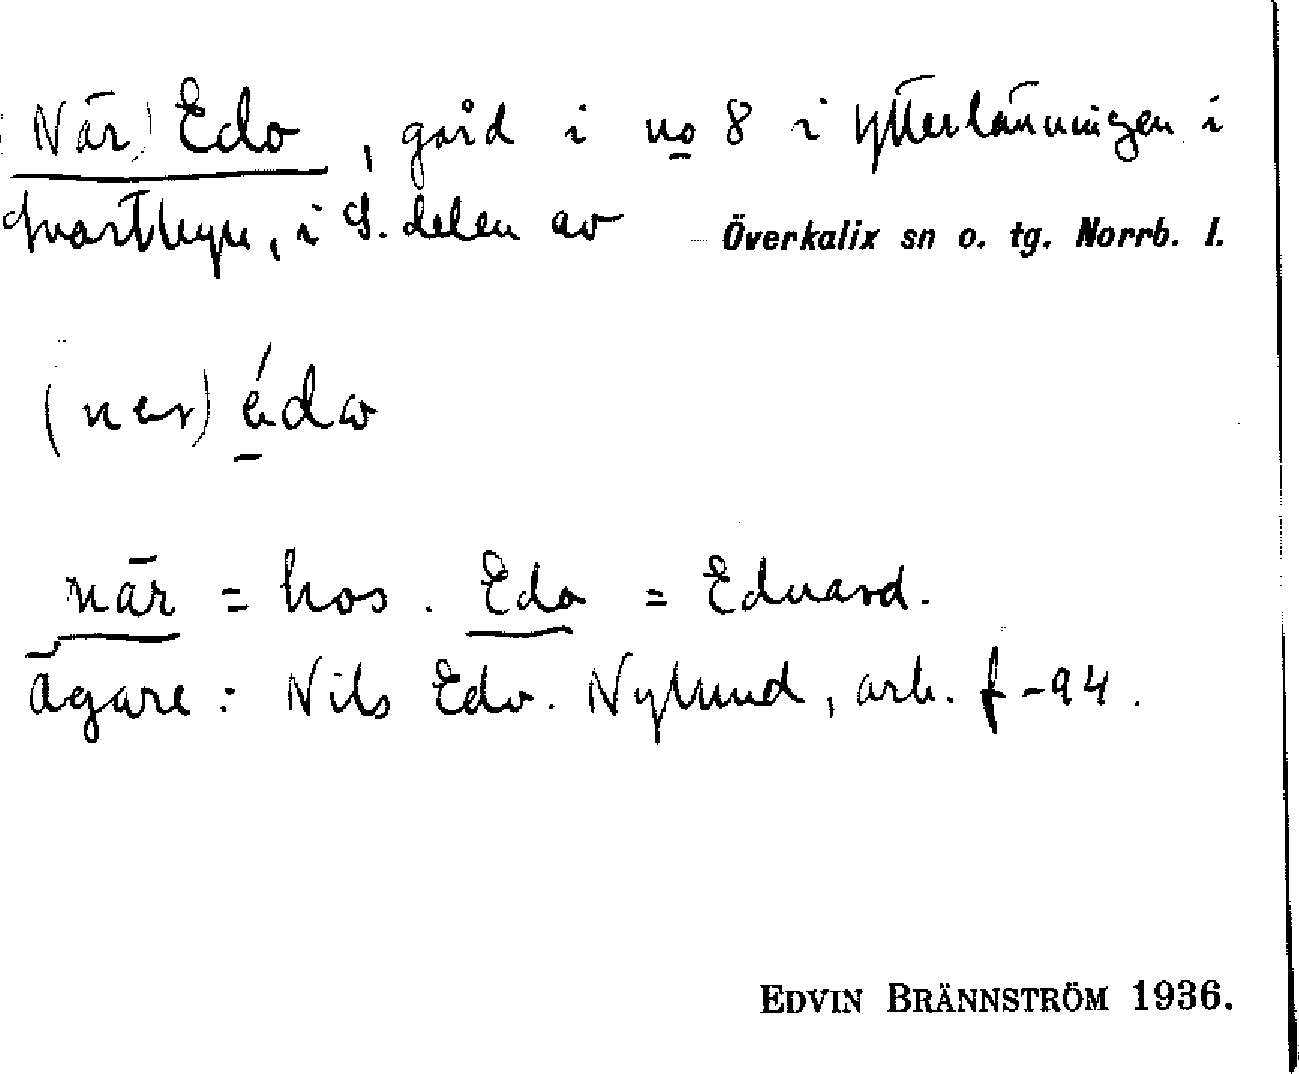 (När) Edo, gård i no 8 i Ytterlänningen i
Svartbyn, i S. delen av Överkalix sn o. tg. Norrb. l.
(ner) édω
när = hos. Edo = Eduard.
ägare: Nils Edv. Nylund, arb. f -94.
EDVIN BRÄNNSTRÖM 1936.